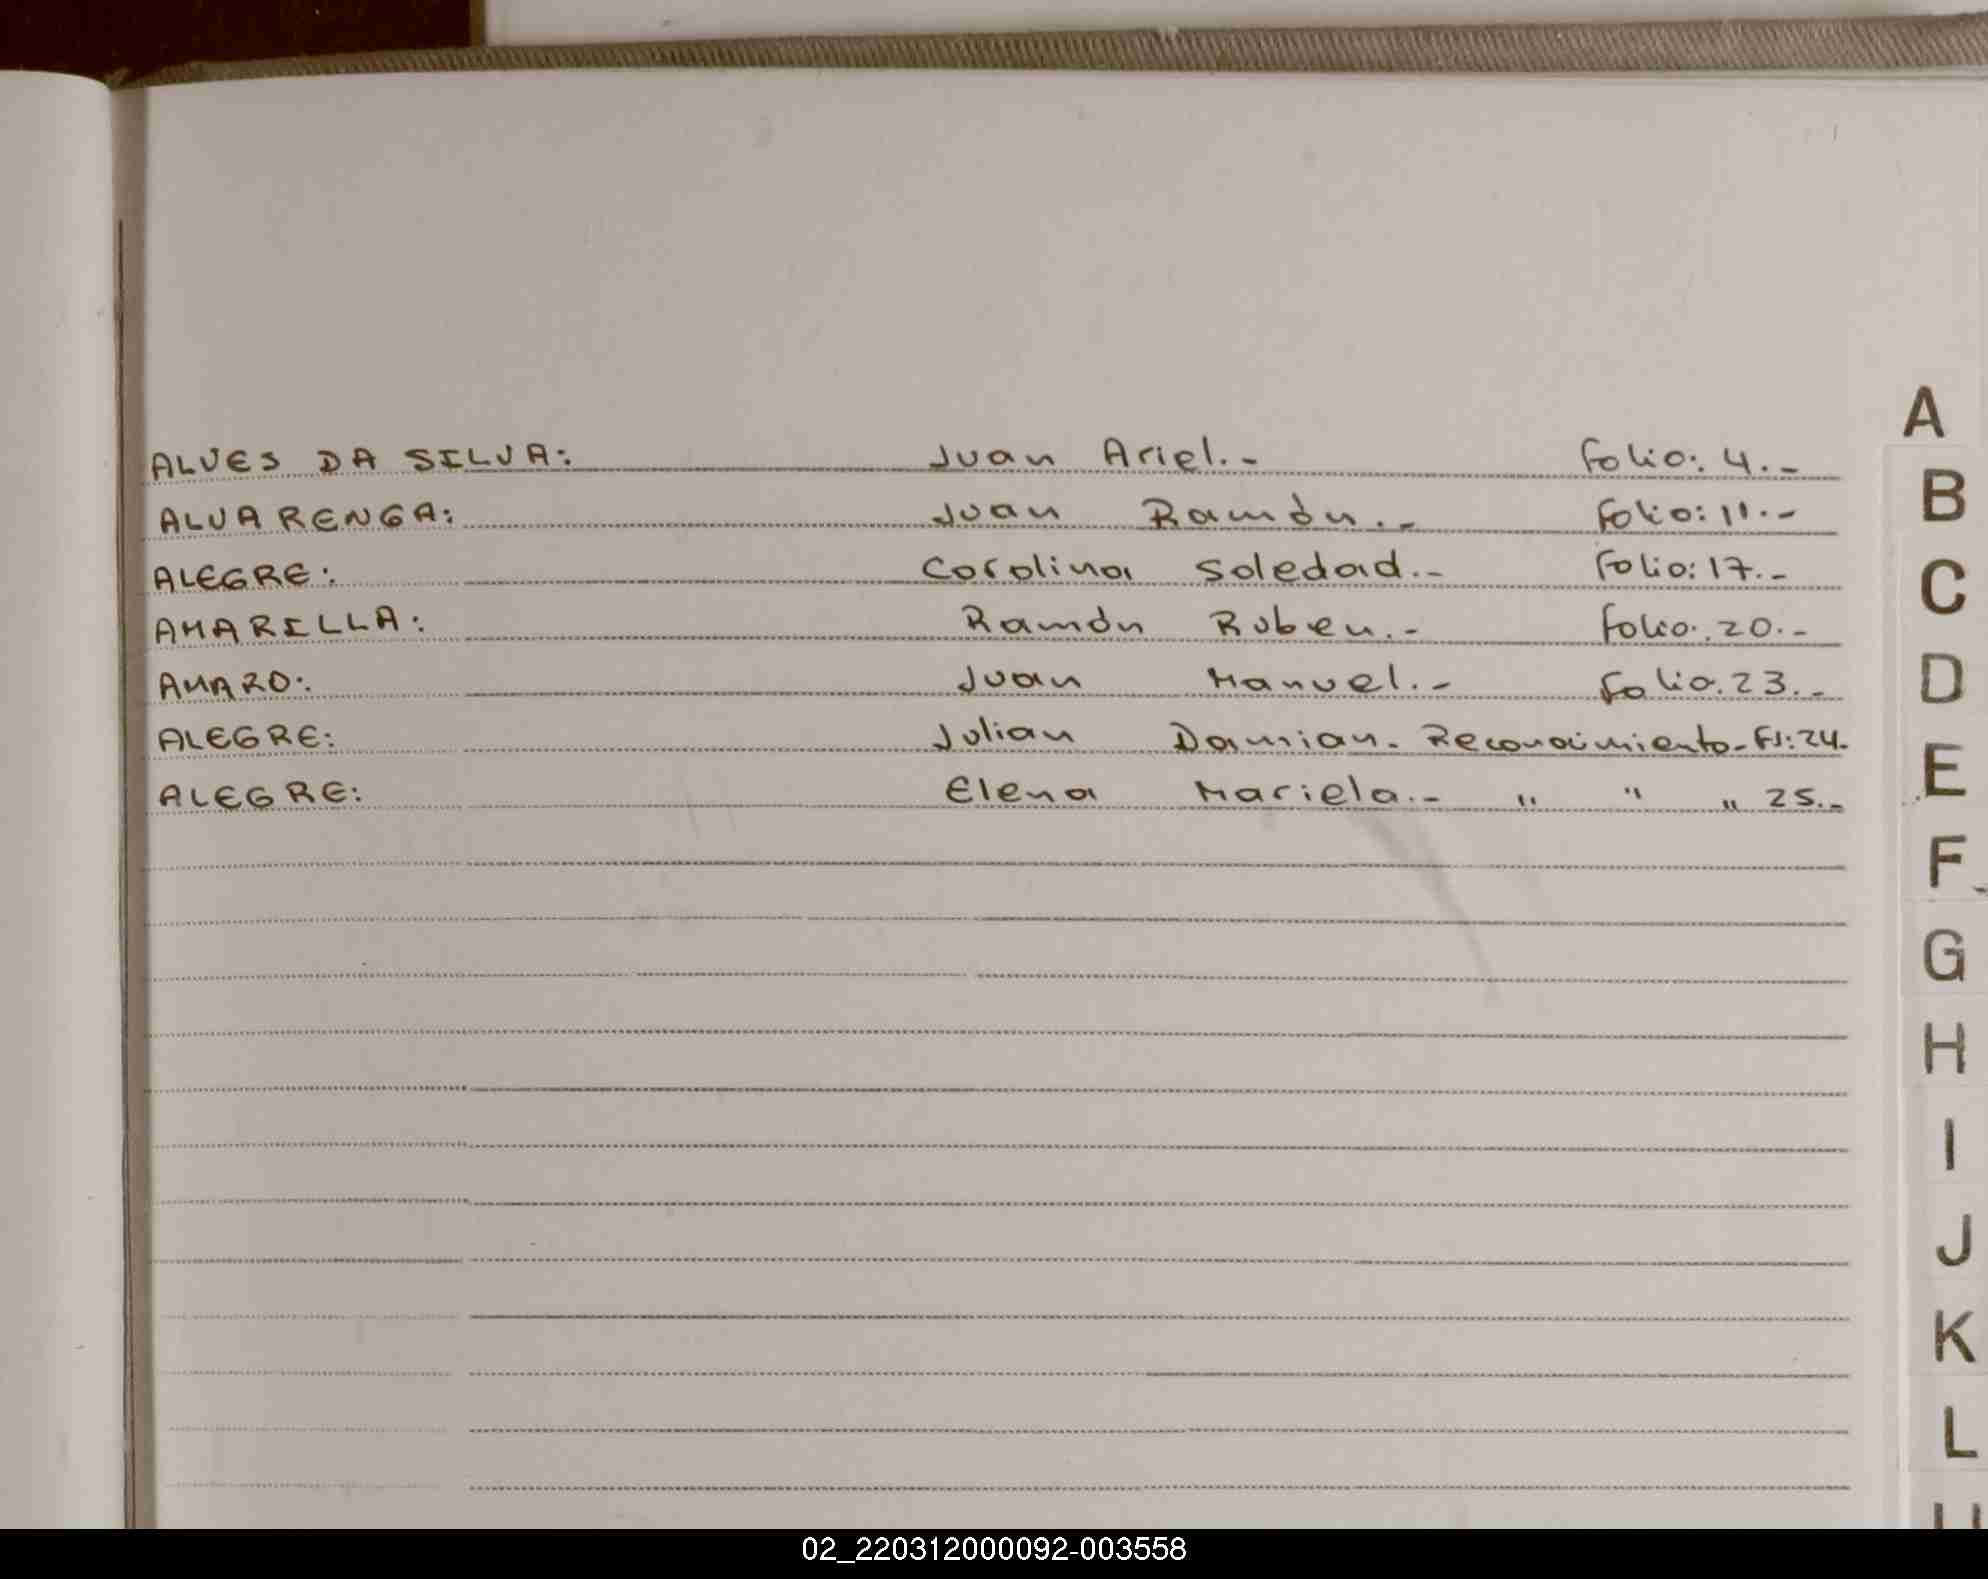 ALVES DA SILVA: Juan Ariel.- Folio: 4.-
ALVARENGA: Juan Ramón.- Folio: 11.-
ALEGRE: Carolina Soledad.- Folio: 17.-
AMARILLA: Ramón Ruben.- Folio: 20.-
AMARO: Juan Manuel.- Folio. 23.-
ALEGRE: Julian Damian. Reconocimiento-FJ: 24.
ALEGRE: Elena Mariela.- " " " 25.-
A
B
C
D
E
F
G
H
I
J
K
L
02_220312000092-003558